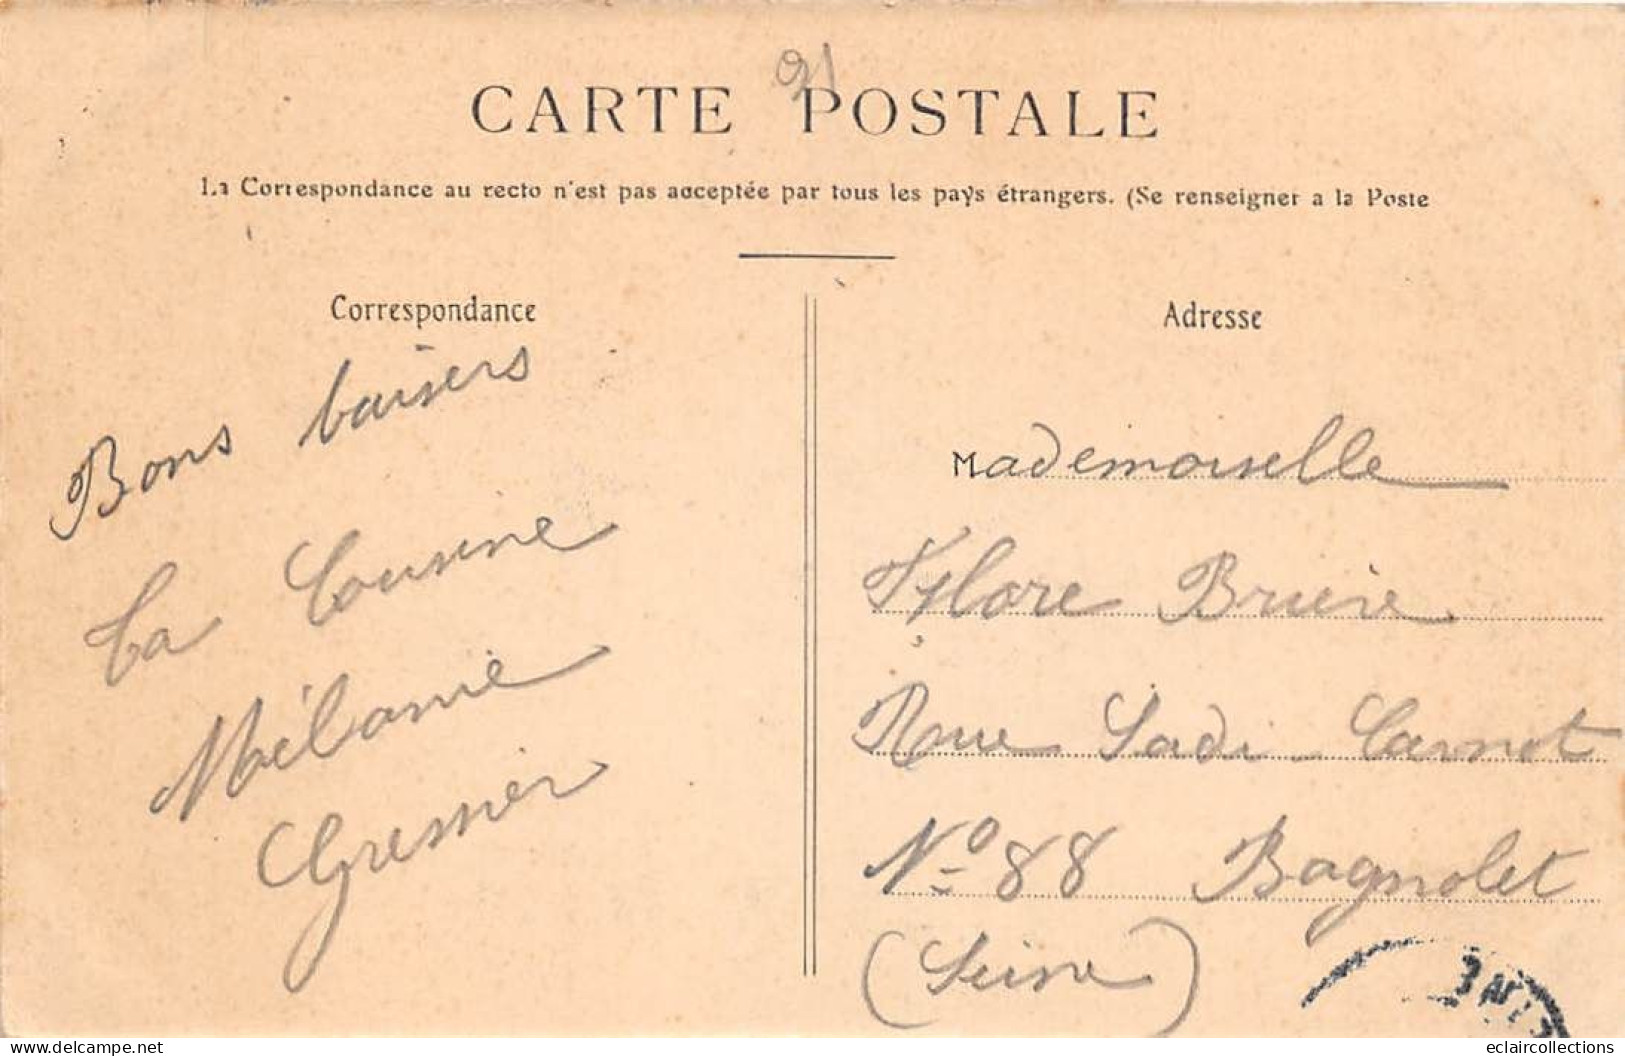 91
CARTE POSTALE
La Correspondance au recto n'est pas acceptée par tous les pays étrangers. (Se renseigner a la Poste
Correspondance
Bons baisers
Ta Cousine
Mélanie
Gressier
Adresse
Mademoiselle
Flore Brière
Rue Sadi-Carnot
No 88 Bagnolet
(Seine)
https://www.delcampe.net
eclaircollections